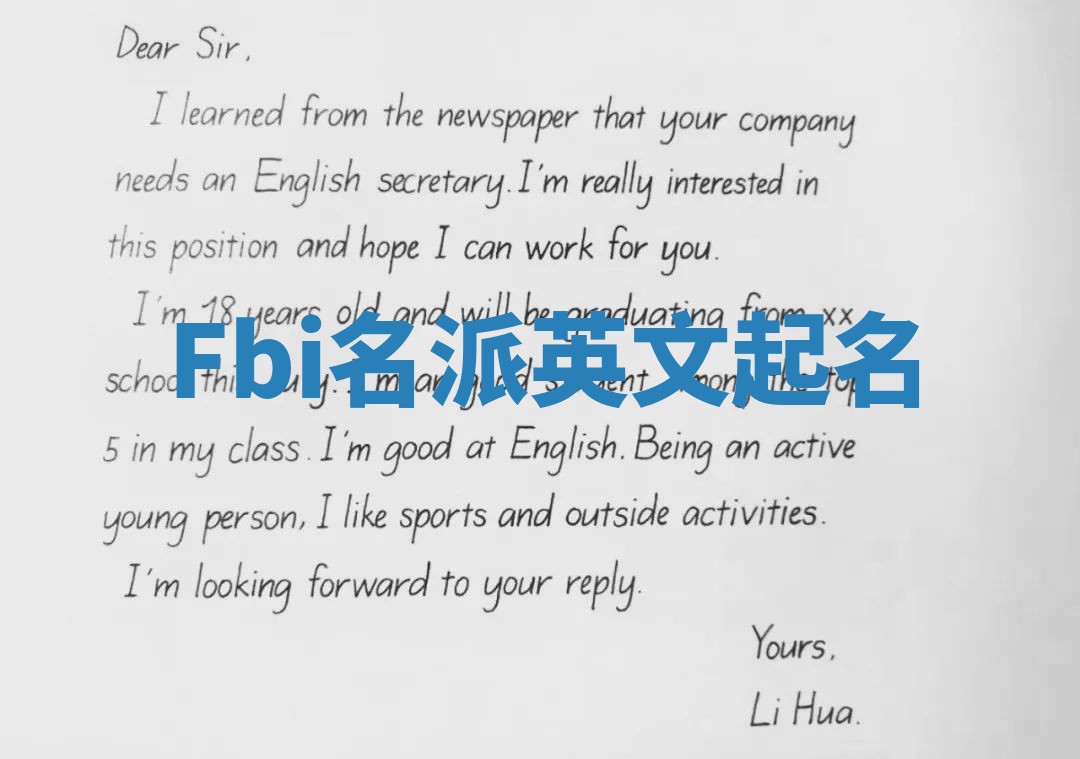 Dear Sir,
I learned from the newspaper that your company
needs an English secretary. I'm really interested in
this position and hope I can work for you.
I'm 18 years old and will be graduating from xx
Fbi名派英文起名
5 in my class. I'm good at English. Being an active
young person, I like sports and outside activities.
I'm looking forward to your reply.
Yours,
Li Hua.